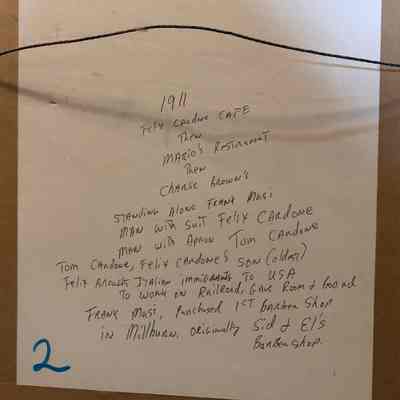 1911
FELIX CARDONE CAFE
Then
MARIO'S RESTAURANT
Then
CHARLIE BROWN'S
STANDING ALONE FRANK MASI
MAN WITH SUIT FELIX CARDONE
MAN WITH APRON TOM CARDONE
TOM CARDONE, FELIX CARDONE'S SON (oldest)
FELIX BROUGHT ITALIAN IMMIGRANTS TO USA
TO WORK ON RAILROAD, GAVE ROOM & board
FRANK MASI, PURCHASED 1ST BARBER SHOP
in Millburn, ORIGINALLY Sid & El's
BARBER SHOP.
2